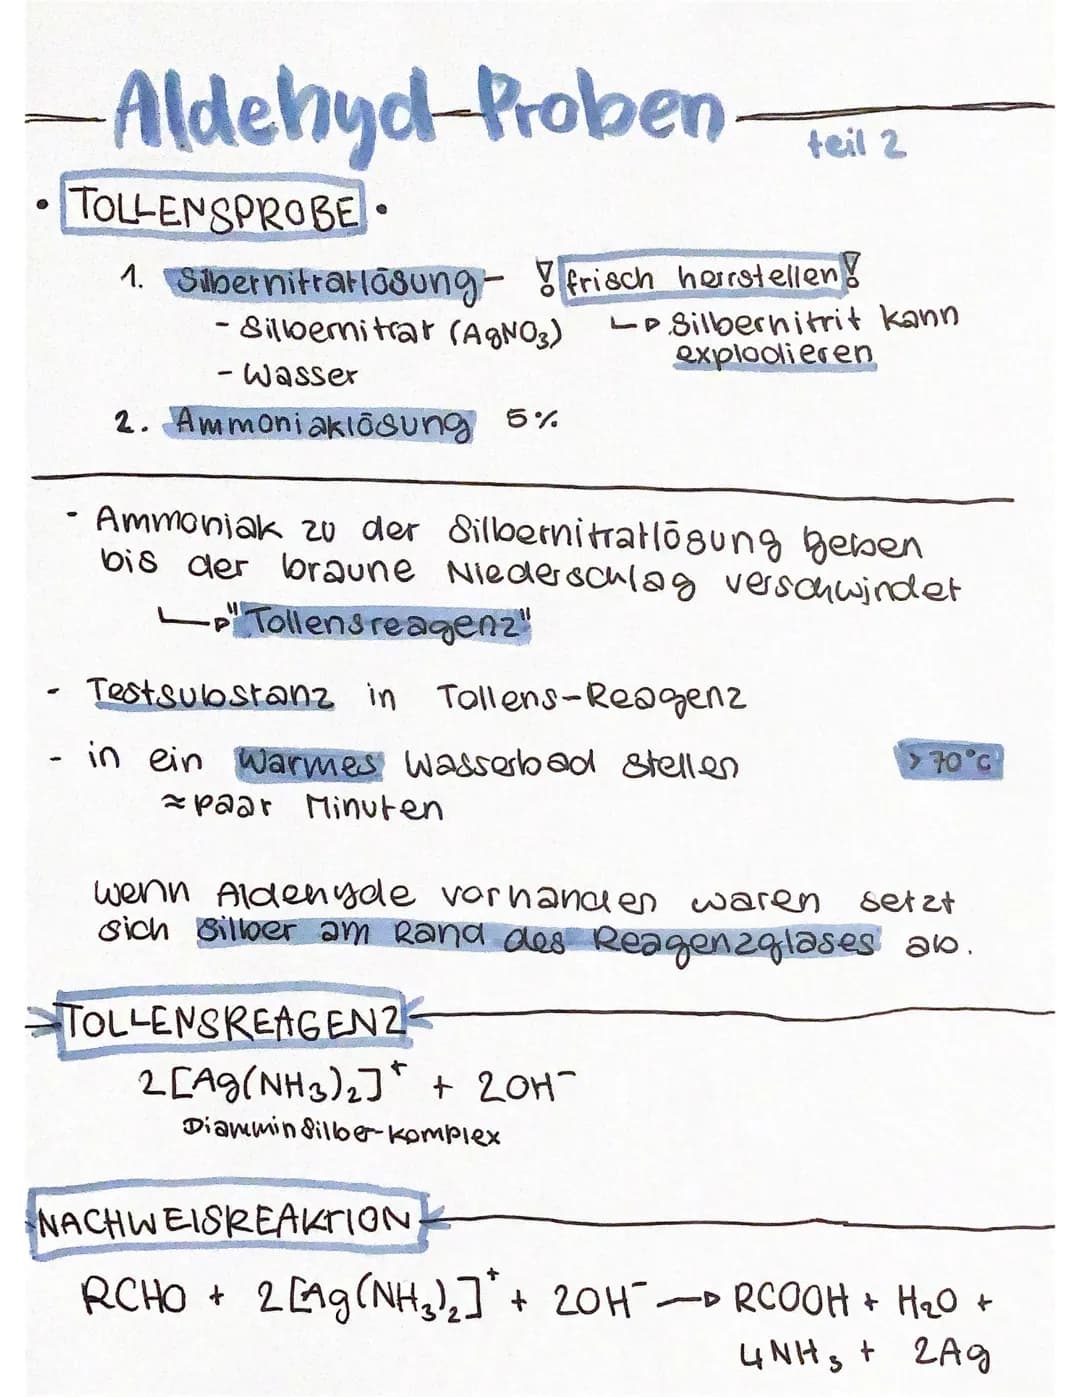 Aldehyd-Proben
teil 2
• TOLLENSPROBE •
1. Silbernitratlösung - ! frisch herrstellen !
- Silbernitrat (AgNO₃)
↳ Silbernitrit kann
explodieren
- Wasser
2. Ammoniaklösung 5%
- Ammoniak zu der Silbernitratlösung geben
bis der braune Niederschlag verschwindet
↳ "Tollensreagenz"
- Testsubstanz in Tollens-Reagenz
- in ein warmes Wasserbad stellen > 70°C
≈ paar Minuten
wenn Aldehyde vorhanden waren setzt
sich Silber am Rand des Reagenzglases ab.
TOLLENSREAGENZ
2[Ag(NH₃)₂]⁺ + 2OH⁻
Diamminsilber-Komplex
NACHWEISREAKTION
RCHO + 2[Ag(NH₃)₂]⁺ + 2OH⁻ → RCOOH + H₂O +
4NH₃ + 2Ag